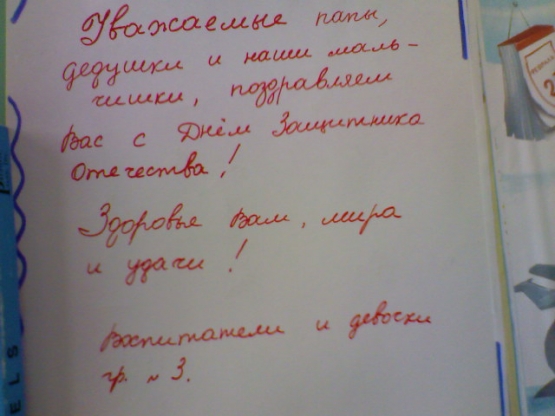 Уважаемые папы,
дедушки и наши маль-
чишки, поздравляем
Вас с Днём Защитника
Отечества!
Здоровья Вам, мира
и удачи!
Воспитатели и девочки
гр. № 3.
ELS